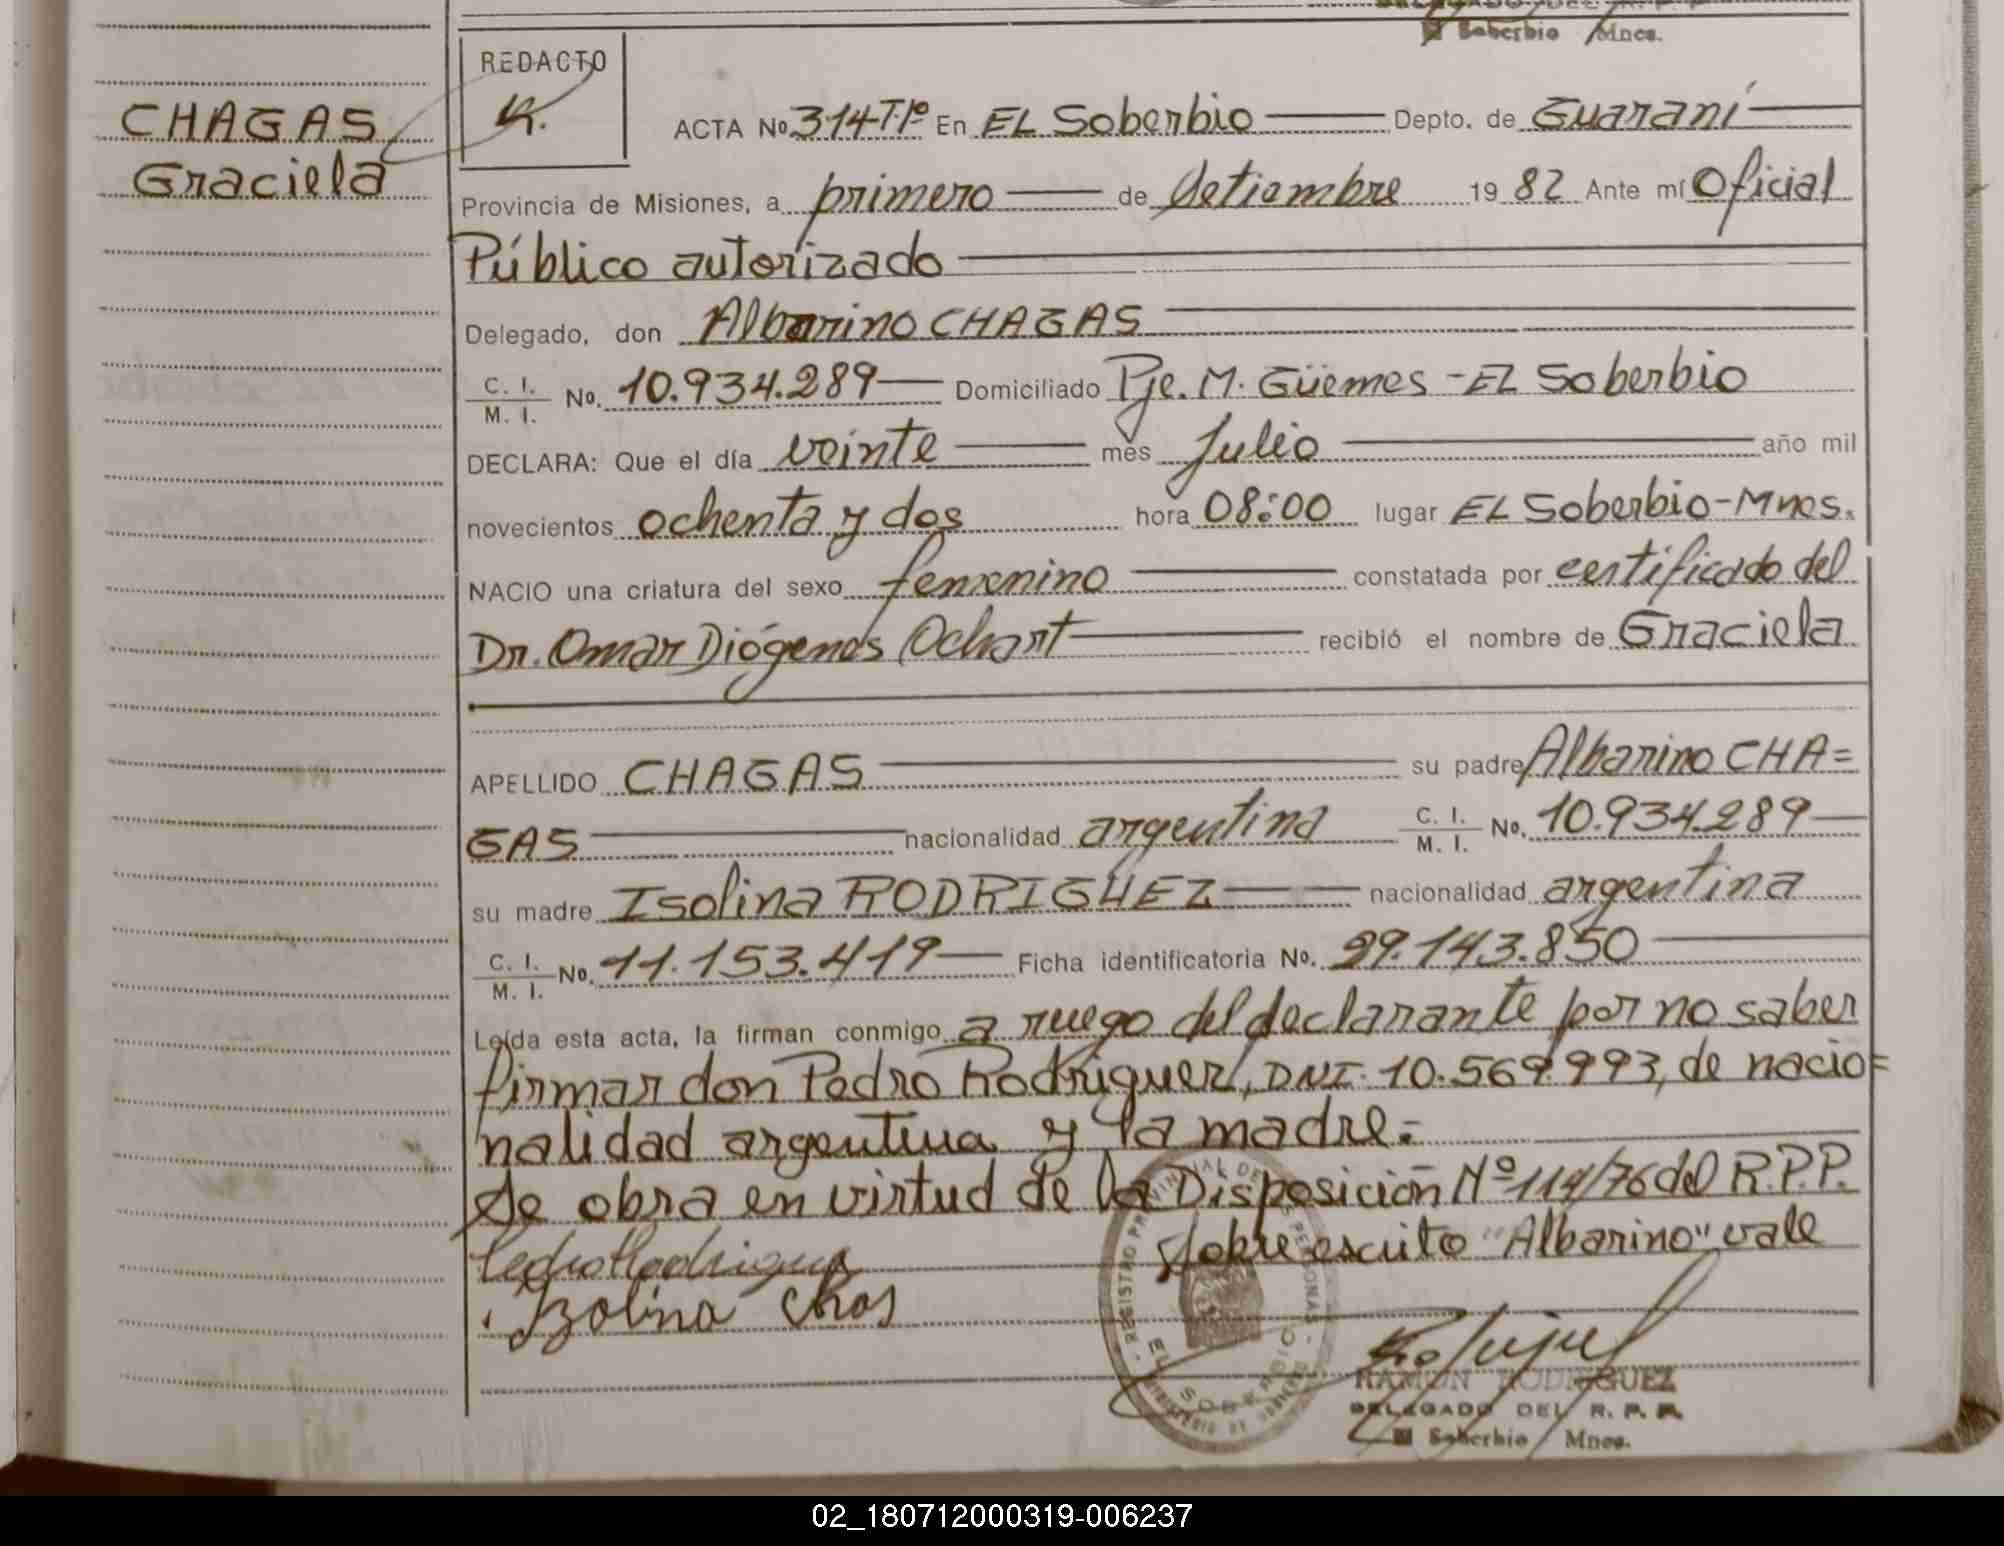 Soberbio Mnes.
CHAGAS
Graciela
REDACTO
ACTA No 314Tº1º En EL Soberbio Depto. de Guaraní
Provincia de Misiones, a primero de Setiembre 1982 Ante mí Oficial
Público autorizado
Delegado, don Albarino CHAGAS
C. I. M. I. No. 10.934.289 Domiciliado Pje. M. Güemes - EL Soberbio
DECLARA: Que el día veinte mes Julio año mil
novecientos ochenta y dos hora 08:00 lugar EL Soberbio-Mnes.
NACIO una criatura del sexo femenino constatada por certificado del
Dr. Omar Diógenes Ochart recibió el nombre de Graciela
APELLIDO CHAGAS su padre Albarino CHA=
GAS nacionalidad argentina C. I. M. I. No. 10.934.289
su madre Isolina RODRIGUEZ nacionalidad argentina
C. I. M. I. No. 11.153.419 Ficha identificatoria No. 29.143.850
Leída esta acta, la firman conmigo a ruego del declarante por no saber
firmar don Pedro Rodriguez, DNI. 10.569.993, de nacio=
nalidad argentina y la madre.-
Se obra en virtud de la Disposición Nº 114/76 del R.P.P.
Sobre escrito "Albarino" vale
Pedro Rodriguez
Izolina Chas
REGISTRO PROVINCIAL DE LAS PERSONAS
EL SOBERBIO
MINISTERIO DE GOBIERNO
RAMON RODRIGUEZ
DELEGADO DEL R. P. P.
El Soberbio Mnes.
02_180712000319-006237